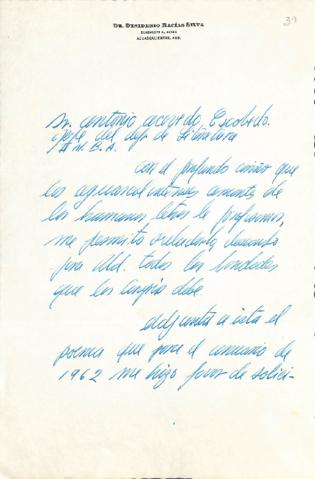 39
DR. DESIDERIO MACÍAS SILVA
AGUASCALIENTES, AGS.
Sr. Antonio Acevedo Escobedo.
Jefe del dep. de Literatura
I. N. B. A.
Con el profundo cariño que
los aguascalentenses amantes de
las humanas letras le profesamos,
me permito saludarlo, deseando
para Ud. todas las bondades
que los ángeles debe.
Adjunta a ésta el
poema que para el anuario de
1962 me hizo favor de solici-